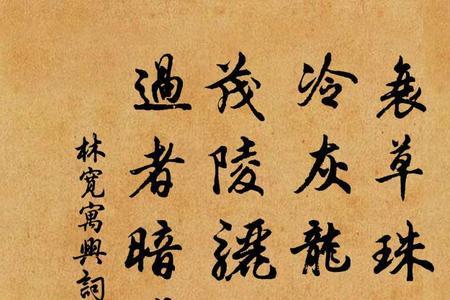 衰草珠
冷灰龍
茂陵驪
過者暗
林寬寓興詞